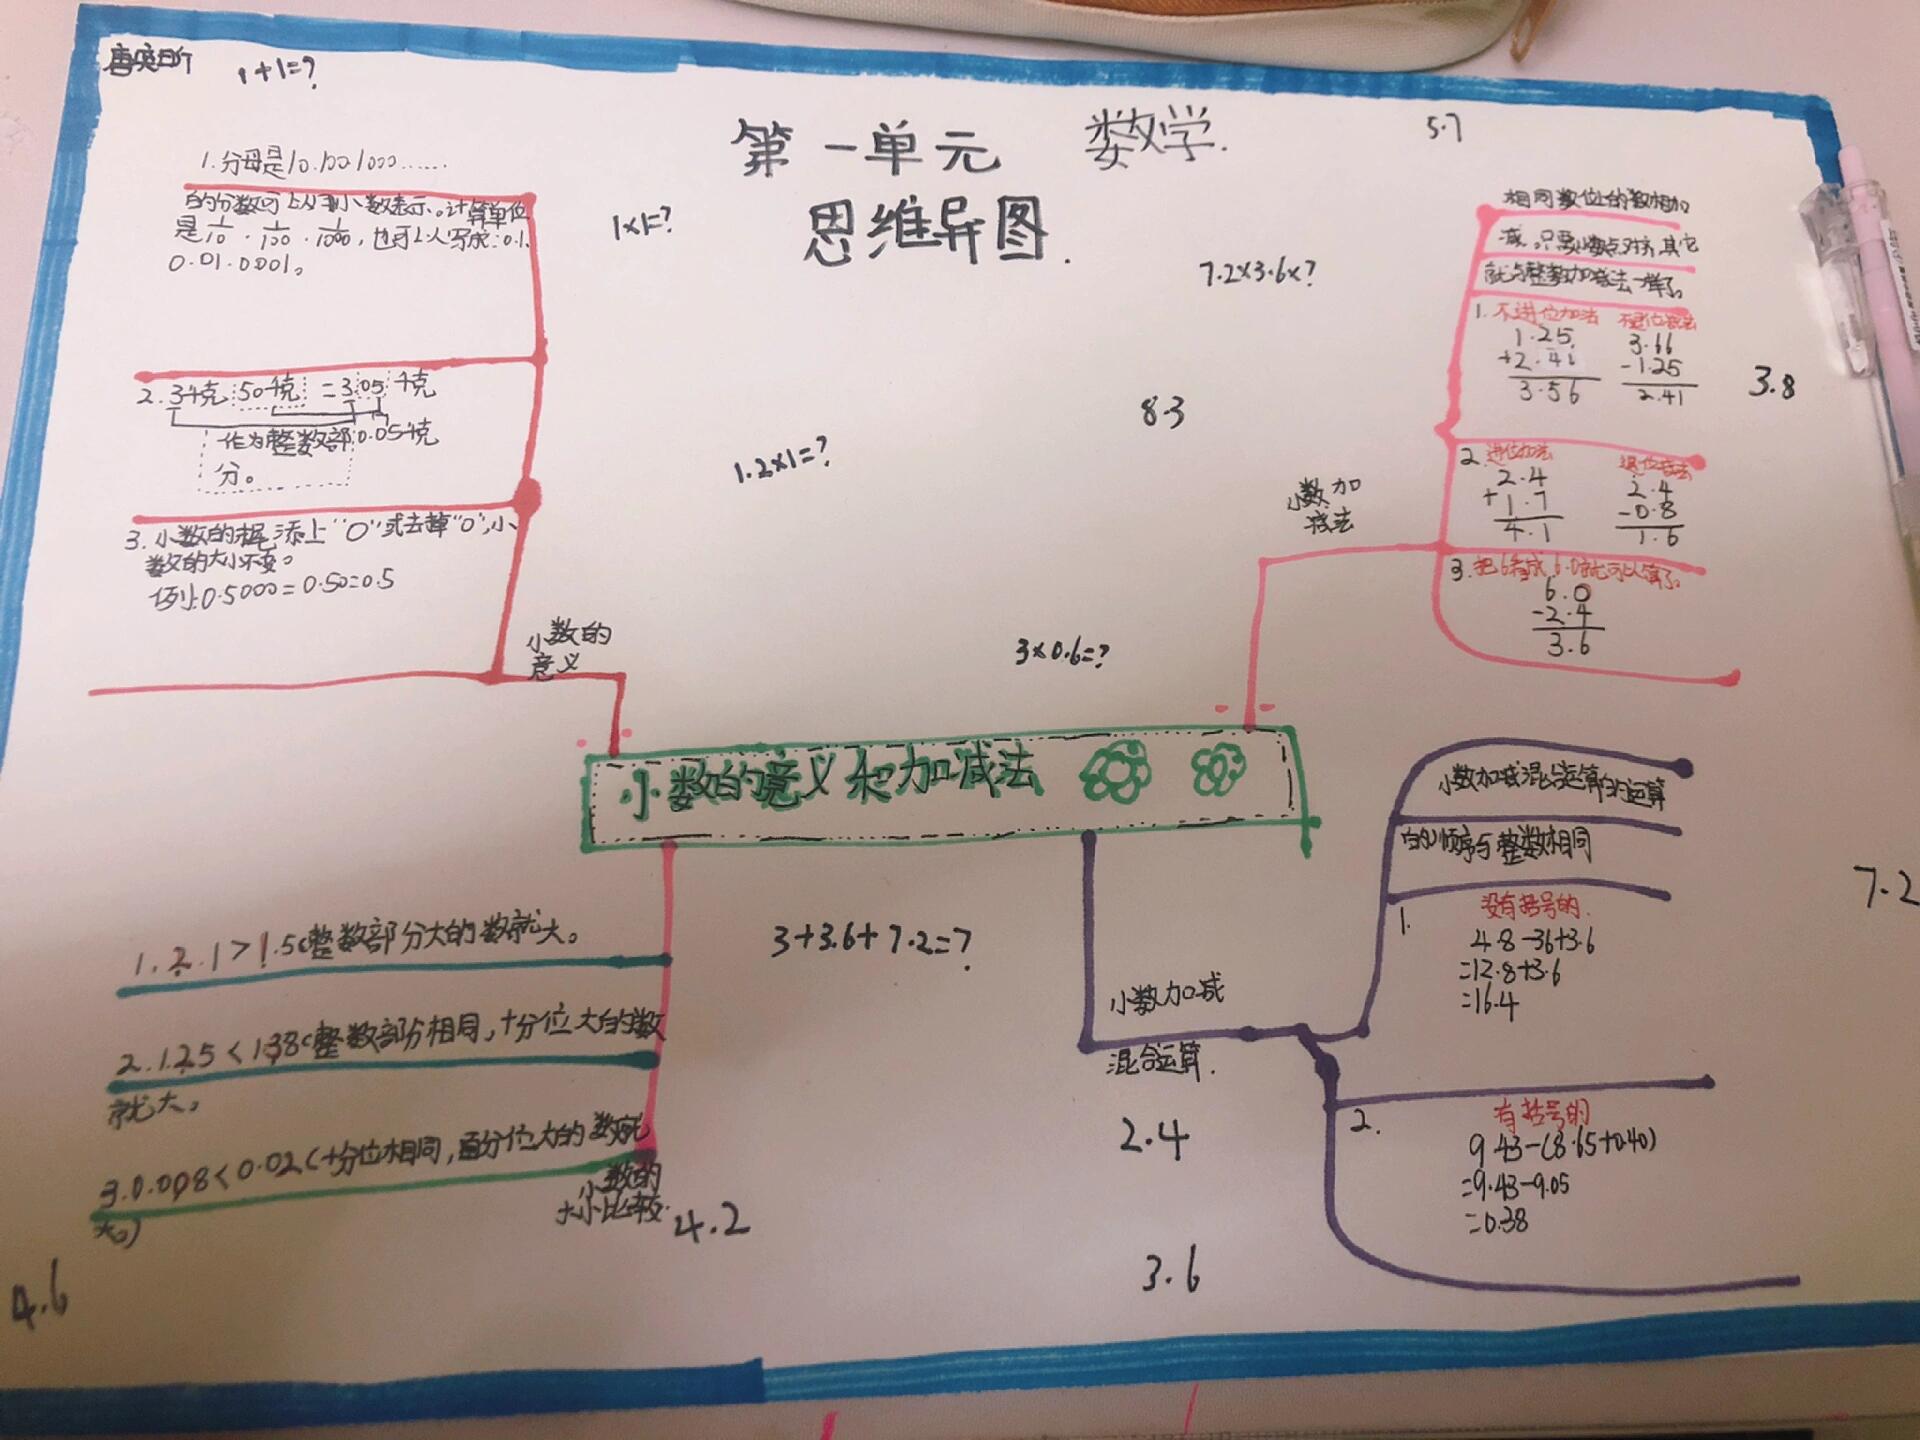 1+1=?
第一单元 数学.
思维导图.
5.7
1×1=?
7.2×3.6×?
8.3
1.2×1=?
3×0.6=?
3.8
1.分母是10.100 1000……
的分数可以用小数表示。计算单位
是1/10.1/100.1/1000,也可以写成:0.1.
0.01.0.001。
2.3千克 50千克 =3.05千克
作为整数部 0.05千克
分。
3.小数的末尾添上"0"或去掉"0",小
数的大小不变。
例:0.5000=0.50=0.5
小数的
意义
小数加
减法
相同数位的数相加
减。只要小数点对齐,其它
就与整数加减法一样了。
1.不进位加法 不退位减法
1.25 3.66
+2.41 -1.25
3.56 2.41
2.进位加法 退位减法
2.4 2.4
+1.7 -0.8
4.1 1.6
3.把6看成6.0就可以算了。
6.0
-2.4
3.6
小数的意义和加减法
1.2.1>1.5(整数部分大的数就大。
2.1.25<1.38(整数部分相同,十分位大的数
就大。
3.0.008<0.02(十分位相同,百分位大的数就
大。)
小数的
大小比较.
4.2
4.6
3+3.6+7.2=?
小数加减
混合运算.
2.4
3.6
7.2
小数加减混合运算的运算
的顺序与整数相同
1.
没有括号的.
4.8-36+3.6
=12.8+3.6
=16.4
2.
有括号的
9.43-(8.65+0.40)
=9.43-9.05
=0.38